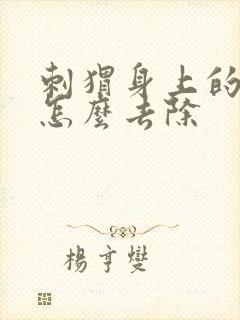 刺猬身上的
怎麼去除
楊亨燮